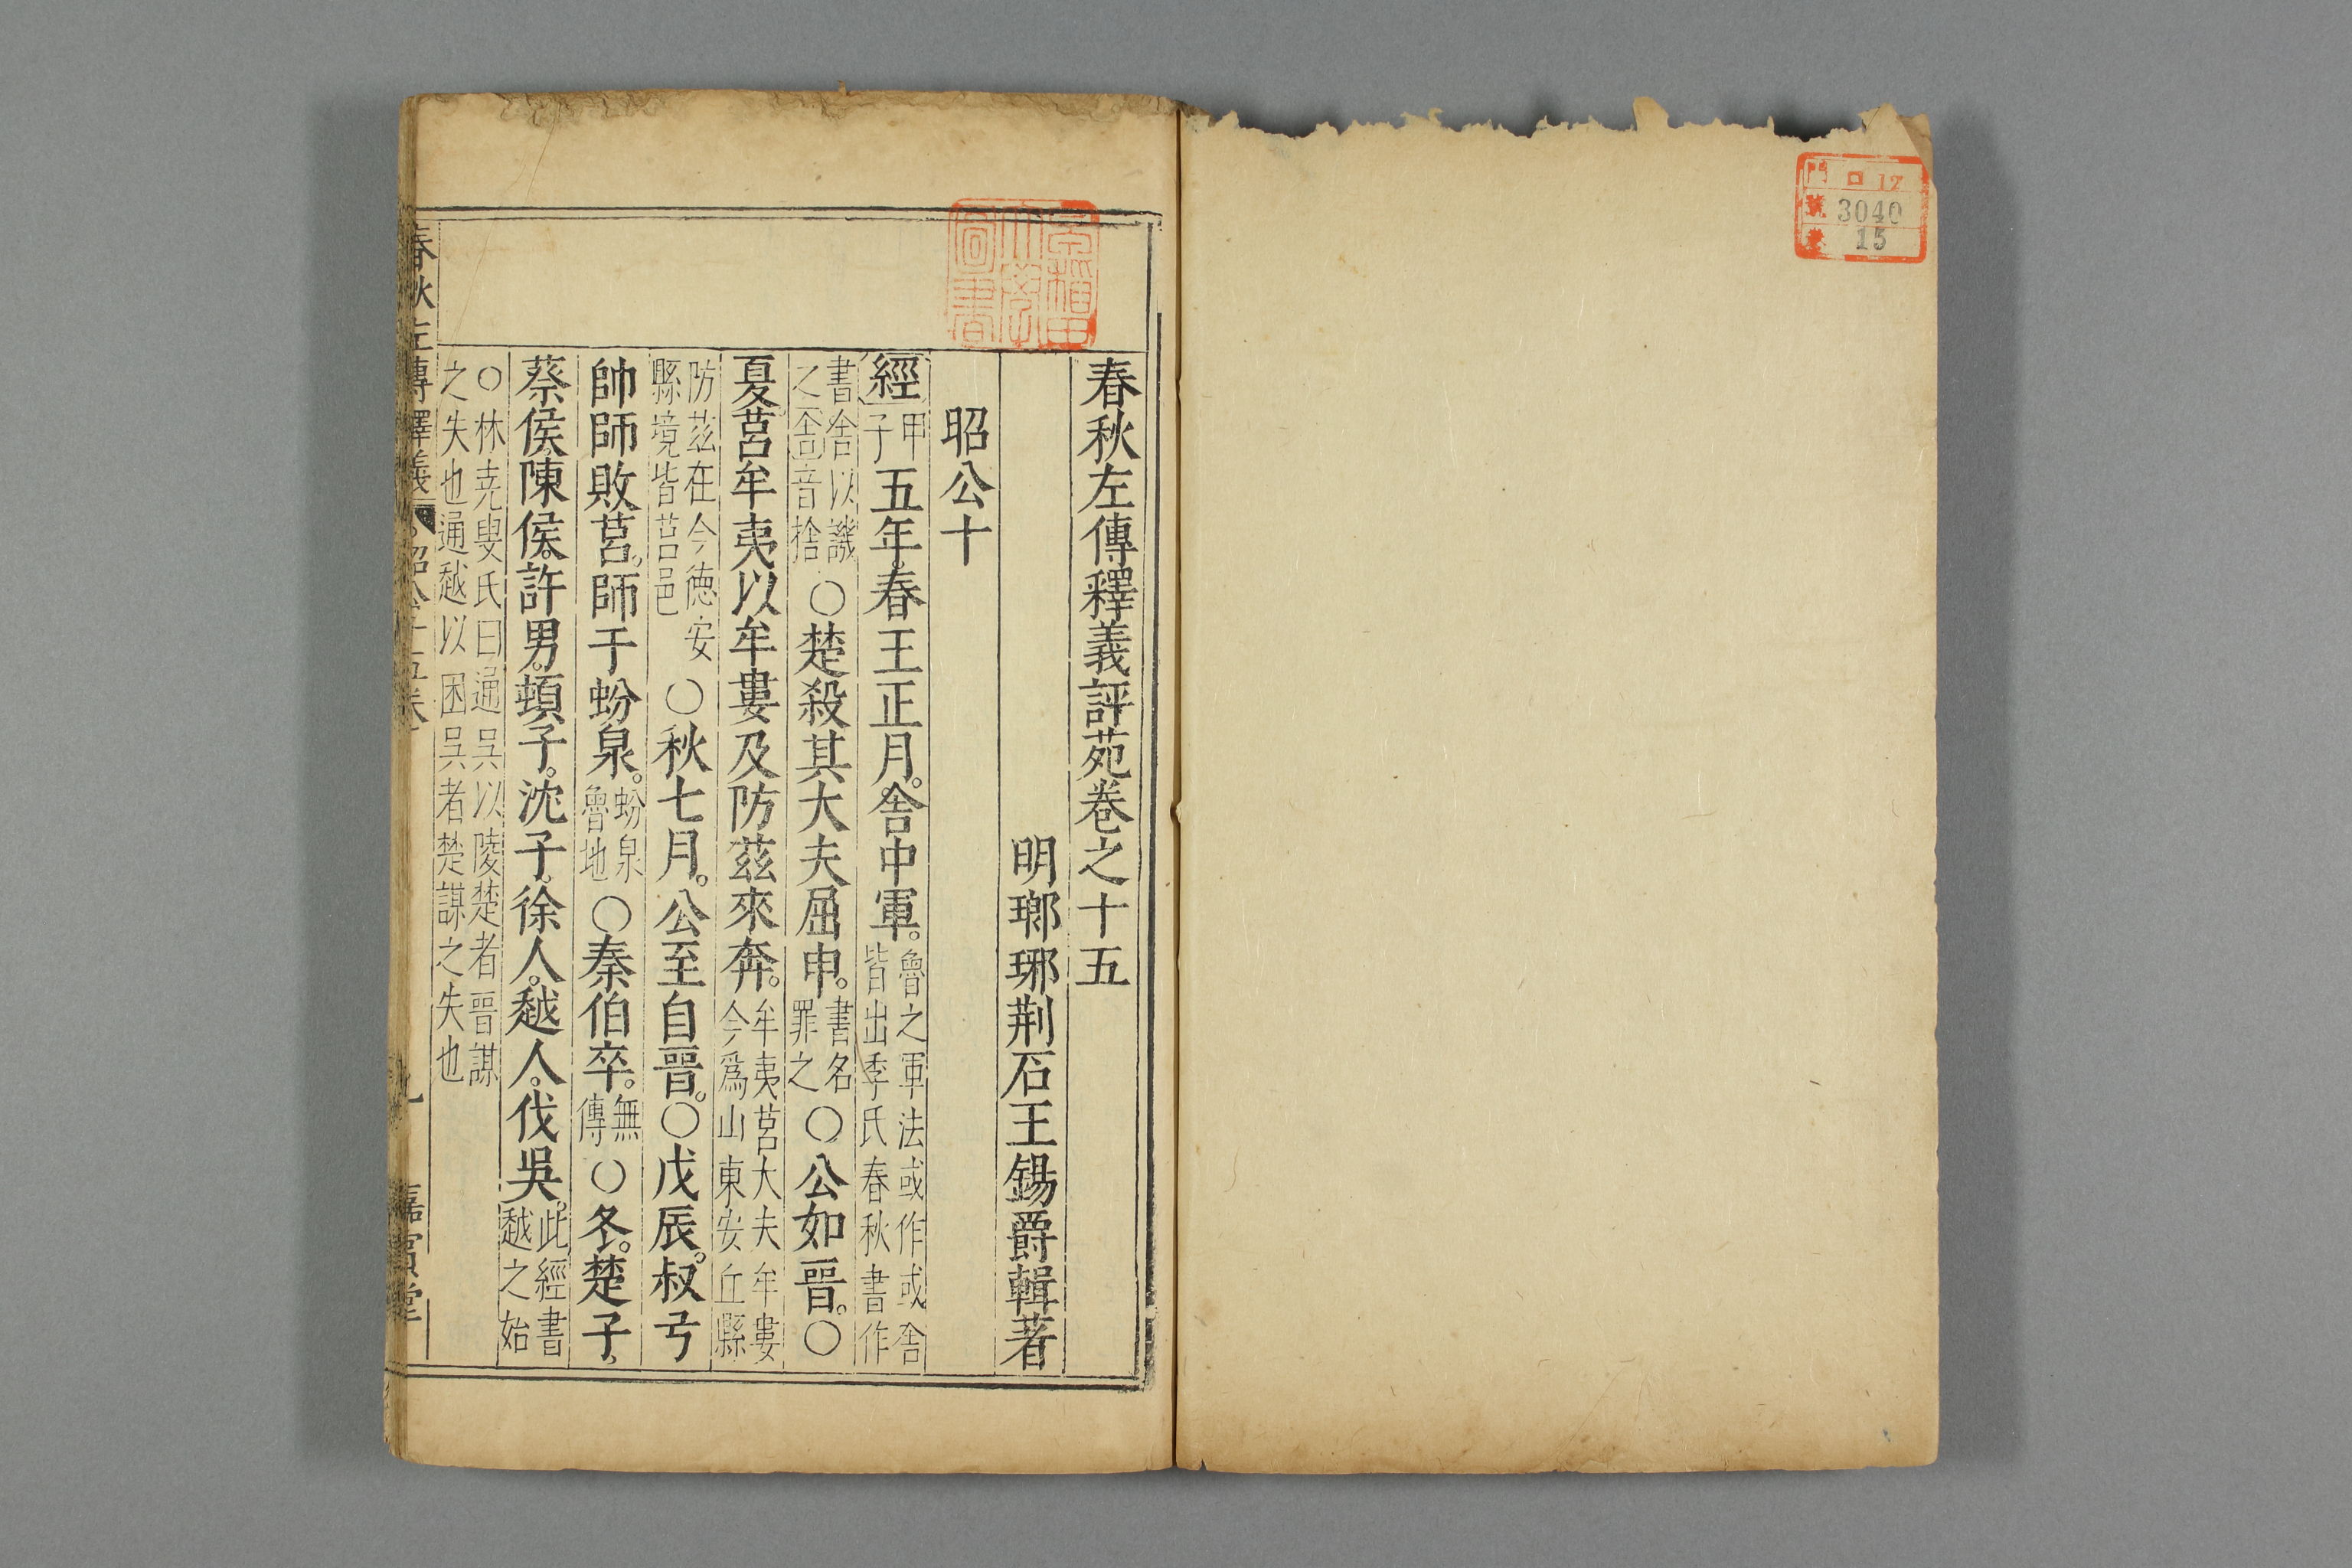 門 口 12
號 3040
卷 15
早稻田大學圖書
春秋左傳釋義評苑卷之十五
明瑯琊荆石王錫爵輯著
昭公十
經甲子五年。春王正月。舍中軍。魯之軍法或作或舍皆出季氏春秋書作
書舍以譏之舍音捨○楚殺其大夫屈申。書名罪之○公如晉。○
夏莒牟夷以牟婁及防茲來奔。牟夷莒大夫牟婁今爲山東安丘縣
防茲在今德安縣境皆莒邑○秋七月。公至自晉。○戊辰。叔弓
帥師敗莒。師于蚡泉。蚡泉魯地○秦伯卒。無傳○冬。楚子。
蔡侯。陳侯。許男。頓子。沈子。徐人。越人。伐吳。此經書越之始
○林尭叟氏曰通吳以陵楚者晉謀之失也通越以困吳者楚謀之失也
春秋左傳釋義 昭公十五卷 嘉賓堂